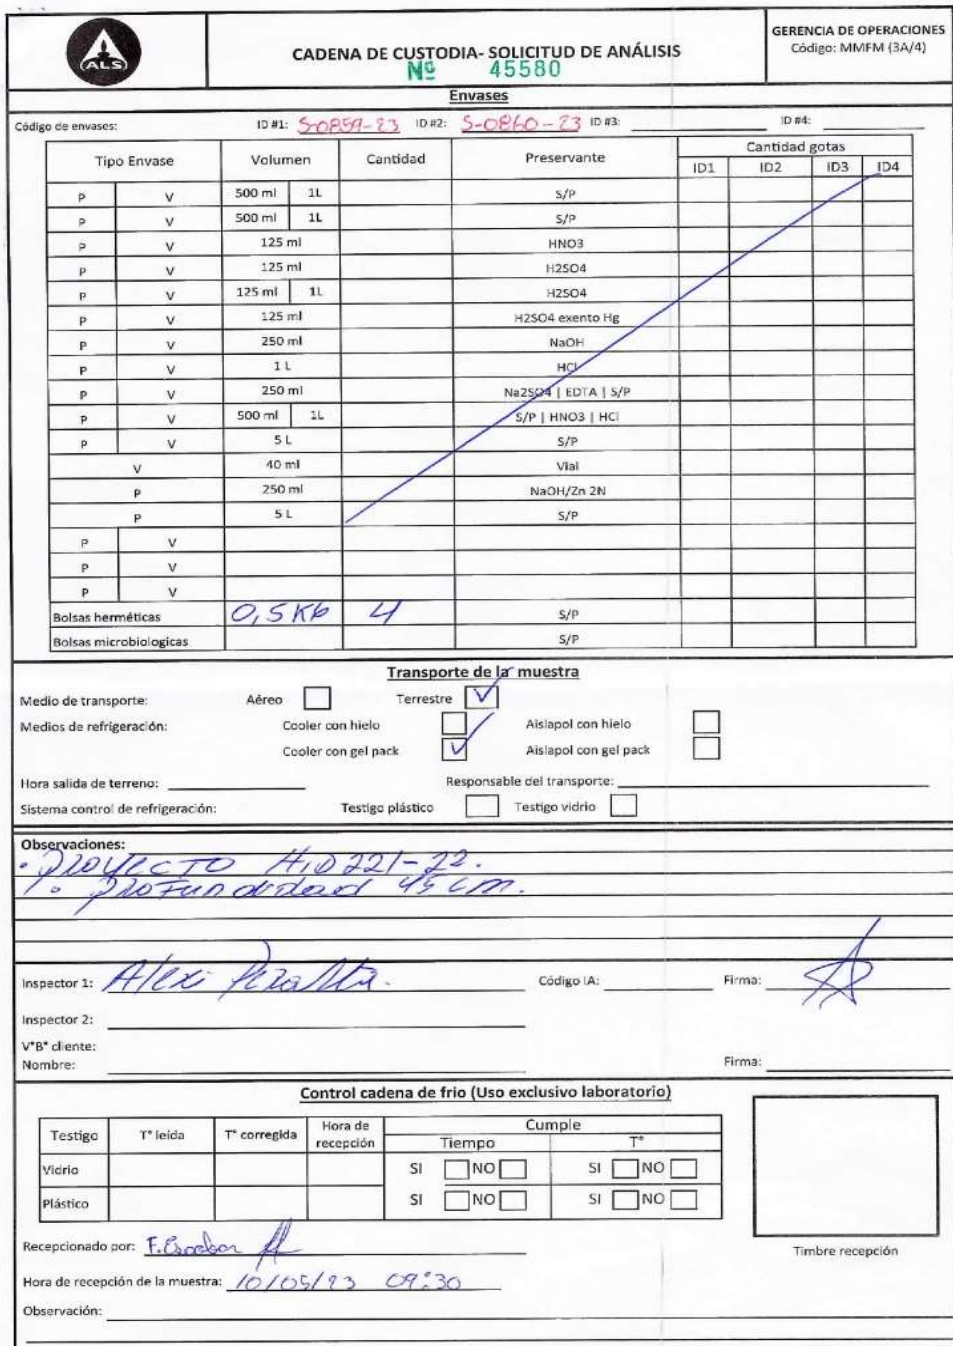 ALS
CADENA DE CUSTODIA- SOLICITUD DE ANÁLISIS
Nº 45580
GERENCIA DE OPERACIONES
Código: MMFM (3A/4)
Envases
Código de envases: ID #1: S-0859-23 ID #2: S-0860-23 ID #3: ID #4:
Tipo Envase Volumen Cantidad Preservante Cantidad gotas
ID1 ID2 ID3 ID4
P V 500 ml 1L S/P
P V 500 ml 1L S/P
P V 125 ml HNO3
P V 125 ml H2SO4
P V 125 ml 1L H2SO4
P V 125 ml H2SO4 exento Hg
P V 250 ml NaOH
P V 1 L HCl
P V 250 ml Na2SO4 | EDTA | S/P
P V 500 ml 1L S/P | HNO3 | HCl
P V 5 L S/P
V 40 ml Vial
P 250 ml NaOH/Zn 2N
P 5 L S/P
P V
P V
P V
Bolsas herméticas 0,5 K 4 S/P
Bolsas microbiologicas S/P
Transporte de la muestra
Medio de transporte: Aéreo Terrestre
Medios de refrigeración: Cooler con hielo Aislapol con hielo
Cooler con gel pack Aislapol con gel pack
Hora salida de terreno: Responsable del transporte:
Sistema control de refrigeración: Testigo plástico Testigo vidrio
Observaciones:
. Proyecto HID221-22.
. Profundidad 45 cm.
Inspector 1: Alexi Peralta. Código IA: Firma:
Inspector 2:
V°B° cliente:
Nombre: Firma:
Control cadena de frio (Uso exclusivo laboratorio)
Testigo T° leida T° corregida Hora de recepción Cumple
Tiempo T°
Vidrio SI NO SI NO
Plástico SI NO SI NO
Recepcionado por: F. Escobar
Timbre recepción
Hora de recepción de la muestra: 10/05/23 09:30
Observación: